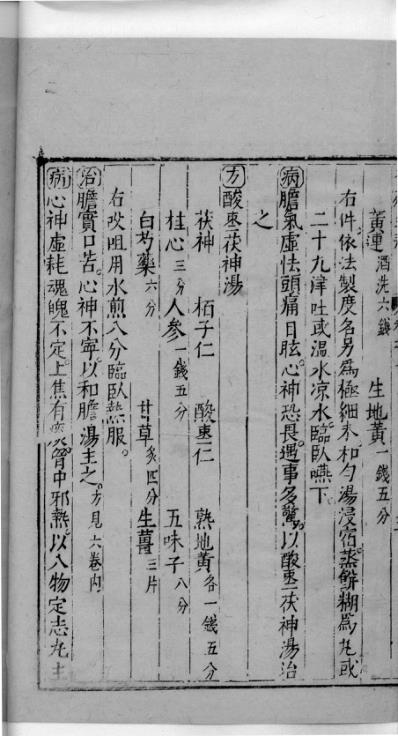 黃連酒洗六錢 生地黃一錢五分
右件依法製度各另爲極細末和勻湯浸宿蒸餠糊爲丸或
二十九津吐或温水凉水臨臥嚥下
病膽氣虛怯頭痛目眩心神恐畏遇事多驚以酸棗茯神湯治
之
方酸棗茯神湯
茯神 栢子仁 酸棗仁 熟地黃各一錢五分
桂心三分 人參一錢五分 五味子八分
白芍藥六分 甘草炙四分 生薑三片
右㕮咀用水煎八分臨臥熱服
治膽實口苦心神不寧以和膽湯主之方見六卷内
病心神虛耗魂魄不定上焦有痰胷中邪熱以八物定志丸主